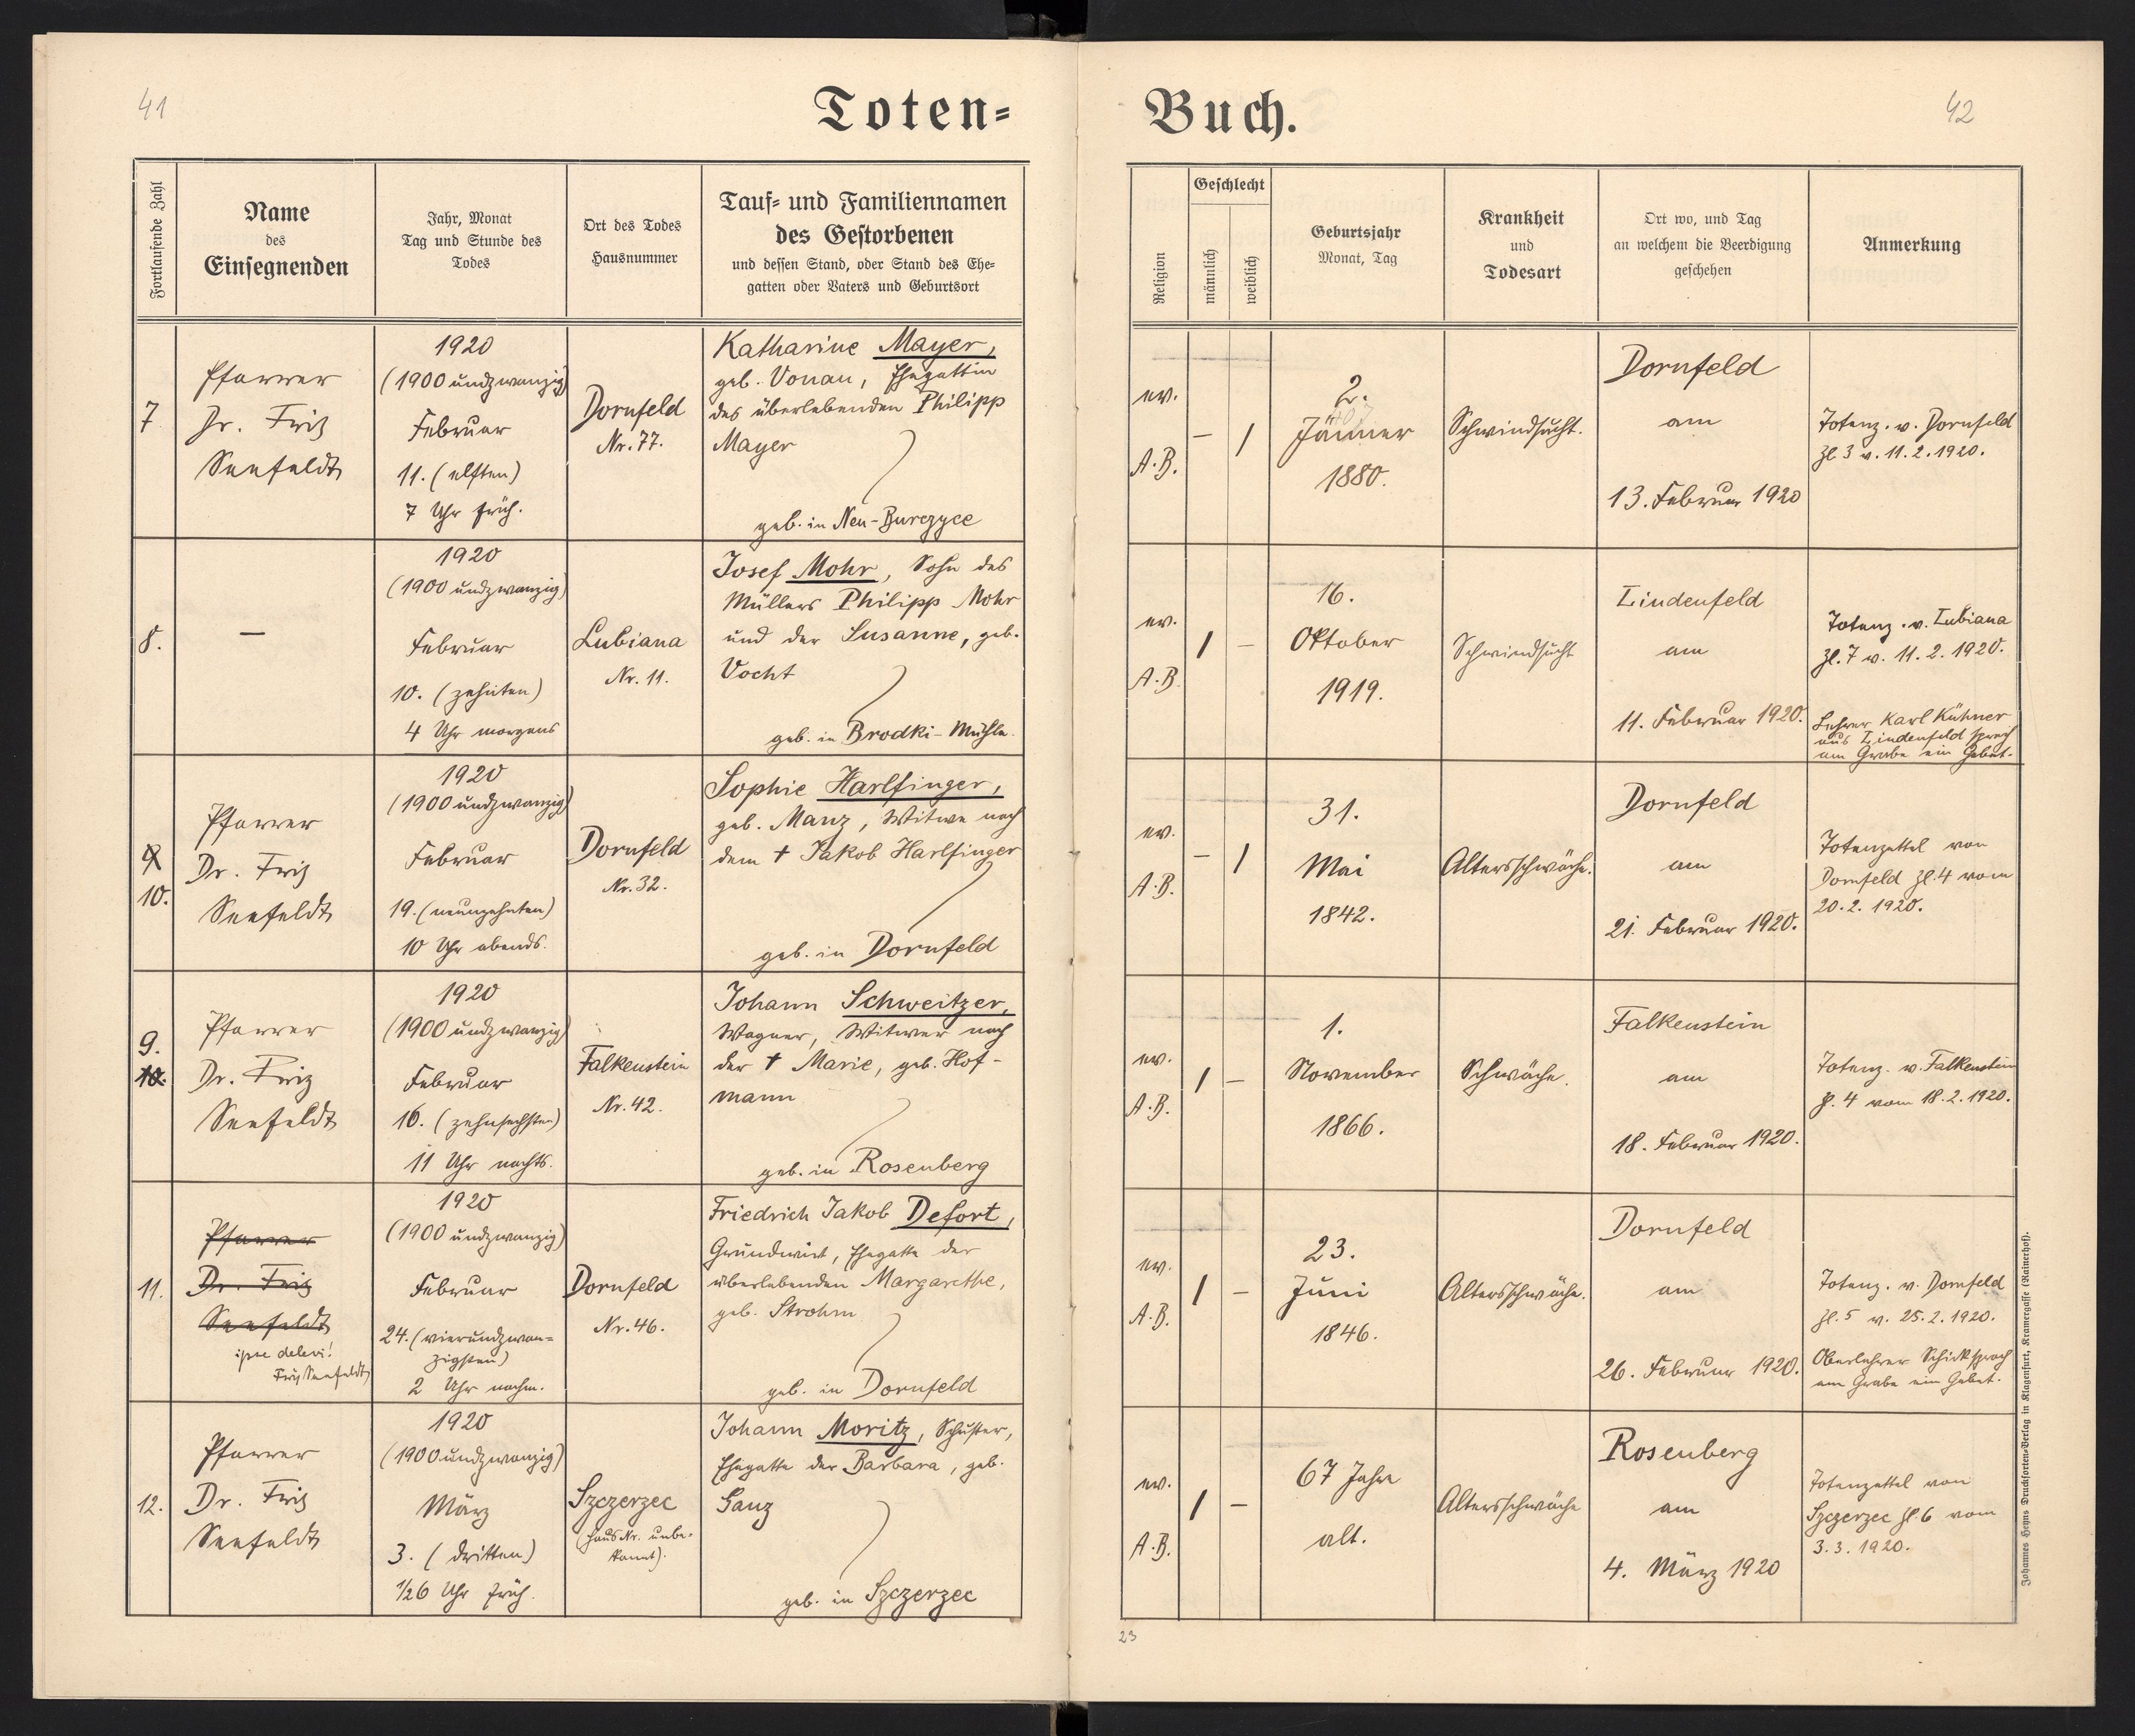 41
Toten=
Fortlaufende Zahl
Name
des
Einsegnenden
Jahr, Monat
Tag und Stunde des
Todes
Ort des Todes
Hausnummer
Tauf= und Familiennamen
des Gestorbenen
und dessen Stand, oder Stand des Ehe=
gatten oder Vaters und Geburtsort
7
Pfarrer
Dr. Fritz
Seefeldt
1920
(1900 undzwanzig)
Februar
11. (elften)
7 Uhr früh.
Dornfeld
Nr. 77.
Katharine Mayer,
geb. Vonau, Ehegattin
des überlebenden Philipp
Mayer
geb. in Neu-Burczyce
8.
—
1920
(1900 undzwanzig)
Februar
10. (zehnten)
4 Uhr morgens
Lubiana
Nr. 11.
Josef Mohr, Sohn des
Müllers Philipp Mohr
und der Susanne, geb.
Vocht
geb. in Brodki-Mühle.
9
10.
Pfarrer
Dr. Fritz
Seefeldt
1920
(1900 undzwanzig)
Februar
19. (neunzehnten)
10 Uhr abends.
Dornfeld
Nr. 32.
Sophie Harlfinger,
geb. Manz, Witwe nach
dem † Jakob Harlfinger
geb. in Dornfeld
9.
10.
Pfarrer
Dr. Fritz
Seefeldt
1920
(1900 undzwanzig)
Februar
16. (zehnsechsten)
11 Uhr nachts.
Falkenstein
Nr. 42.
Johann Schweitzer,
Wagner, Witwer nach
der † Marie, geb. Hof-
mann
geb. in Rosenberg
11.
Pfarrer
Dr. Fritz
Seefeldt
ipse delevi!
Fritz Seefeldt
1920
(1900 undzwanzig)
Februar
24. (vierundzwan=
zigsten)
2 Uhr nachm.
Dornfeld
Nr. 46.
Friedrich Jakob Defort,
Grundwirt, Ehegatte der
überlebenden Margarethe,
geb. Strohm
geb. in Dornfeld
12.
Pfarrer
Dr. Fritz
Seefeldt
1920
(1900 undzwanzig)
März
3. (dritten)
1/26 Uhr früh.
Szczerzec
(Haus Nr. unbe-
kannt).
Johann Moritz, Schuster,
Ehegatte der Barbara, geb.
Ganz
geb. in Szczerzec
Buch.
42
Religion
Geschlecht
männlich
weiblich
Geburtsjahr
Monat, Tag
Krankheit
und
Todesart
Ort wo, und Tag
an welchem die Beerdigung
geschehen
Anmerkung
ev.
A.B.
— 1
2.
Jänner
1880.
Schwindsucht.
Dornfeld
am
13. Februar 1920
Totenz. v. Dornfeld
Zl 3 v. 11.2.1920.
ev.
A.B.
1 —
16.
Oktober
1919.
Schwindsucht
Lindenfeld
am
11. Februar 1920.
Totenz. v. Lubiana
Zl. 7 v. 11.2.1920.
Lehrer Karl Kühner
aus Lindenfeld sprach
am Grabe ein Gebet.
ev.
A.B.
— 1
31.
Mai
1842.
Altersschwäche.
Dornfeld
am
21. Februar 1920.
Totenzettel von
Dornfeld Zl. 4 vom
20.2.1920.
ev.
A.B.
1 —
1.
November
1866.
Schwäche.
Falkenstein
am
18. Februar 1920.
Totenz. v. Falkenstein
Zl. 4 vom 18.2.1920.
ev.
A.B.
1 —
23.
Juni
1846.
Altersschwäche.
Dornfeld
am
26. Februar 1920.
Totenz. v. Dornfeld
Zl. 5 v. 25.2.1920.
Oberlehrer Schick sprach
am Grabe ein Gebet.
ev.
A.B.
1 —
67 Jahre
alt.
Altersschwäche
Rosenberg
am
4. März 1920
Totenzettel von
Szczerzec Zl. 6 vom
3.3.1920.
Johannes Heyns Drucksorten-Verlag in Klagenfurt, Kramergasse (Rainerhof).
23